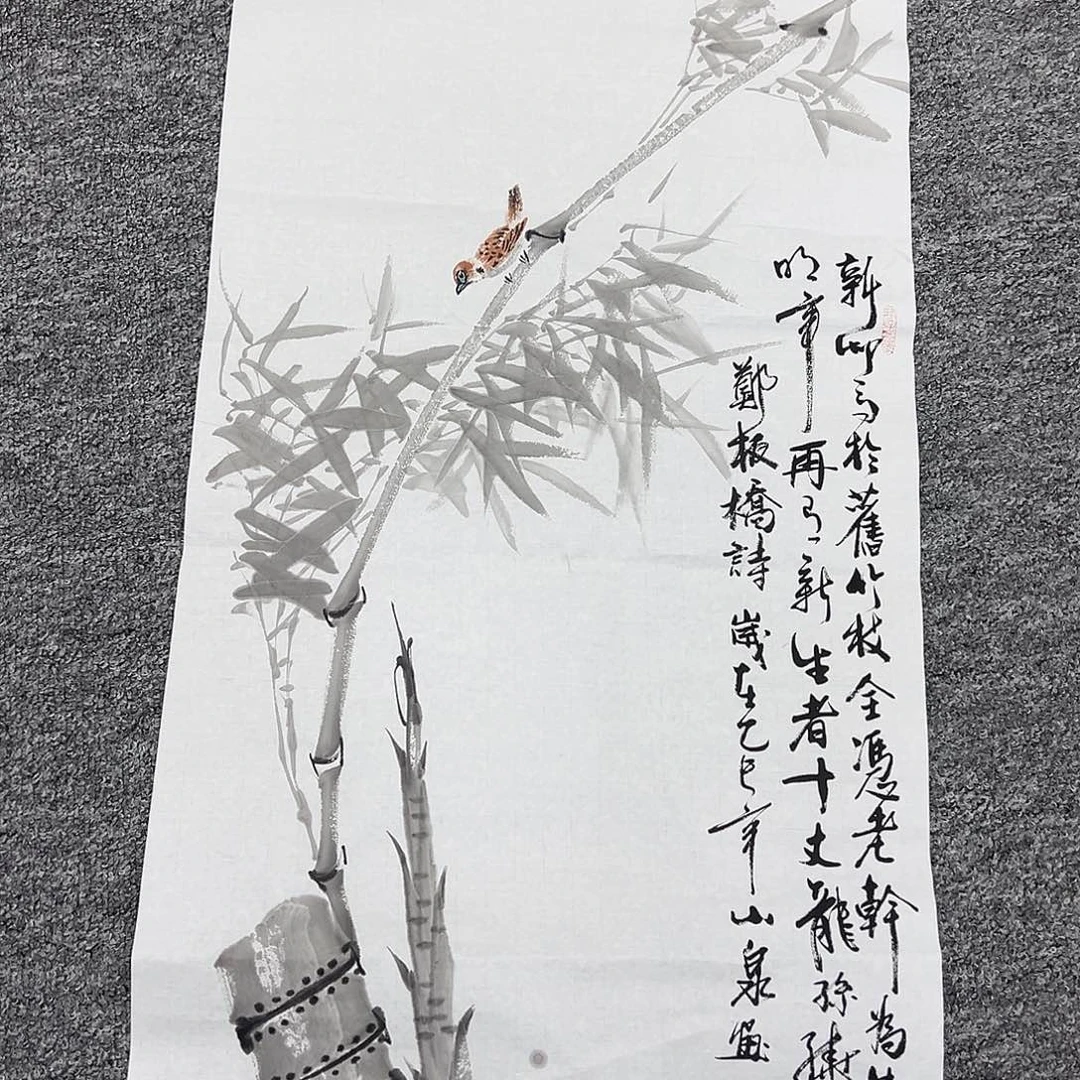 新竹高於舊竹枝全憑老幹為
明年再有新生者十丈龍孫繞
鄭板橋詩 歲在乙巳年山泉畫